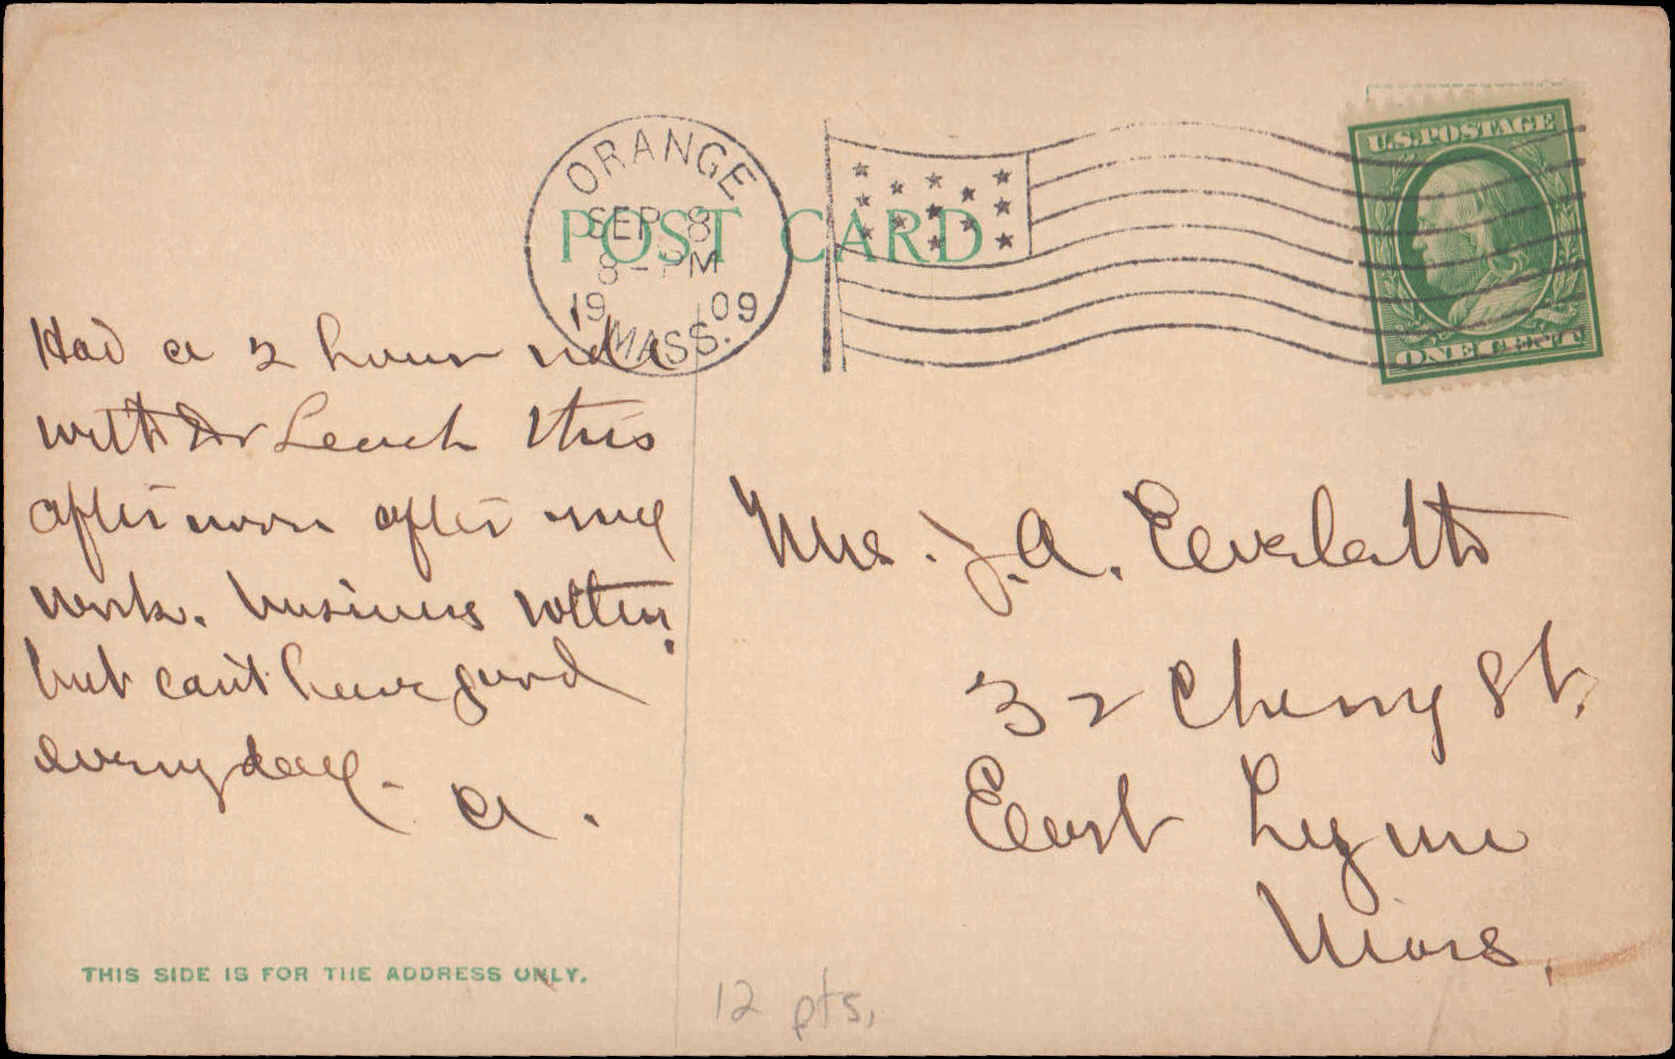 POST CARD
ORANGE
SEP 8
8 - PM
1909
MASS.
U.S. POSTAGE
ONE CENT
Had a 2 hour ride
with Dr Leach this
afternoon after my
work. business rotten.
but can't have good
every day - A.
Mrs. J. A. Everlatts
32 Cherry St.
East Lynn
Mass.
THIS SIDE IS FOR THE ADDRESS ONLY.
12 pts.